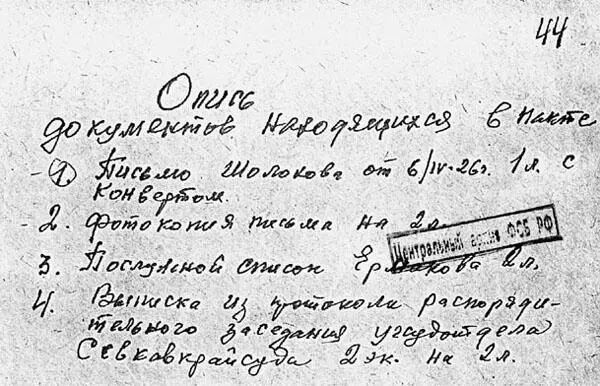 44
Опись
документов находящихся в пакте
1) Письмо Шолохова от 6/IV-26г. 1л. с
конвертом.
2. Фотокопия письма на 2л.
Центральный архив ФСБ РФ
3. Послужной список Ермакова 2л.
4. Выписка из протокола распоряди-
тельного заседания угсудотдела
Севкавкрайсуда 2 эк. на 2л.